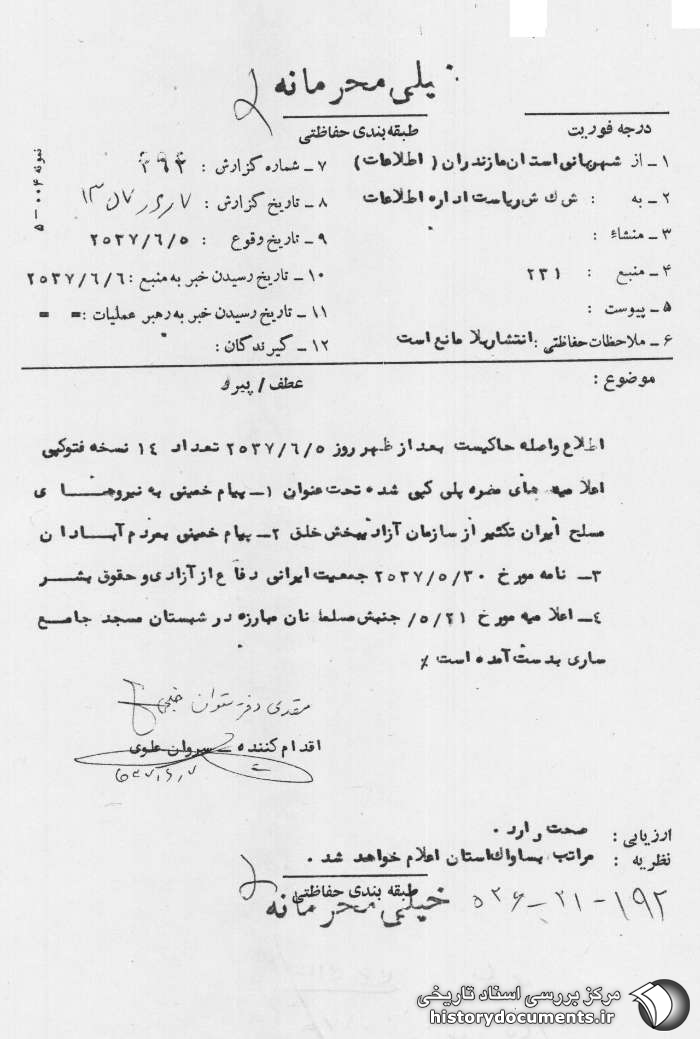 خیلی محرمانه
درجه فوریت
طبقه‌بندی حفاظتی
۱ـ از شهربانی استان مازندران ( اطلاعات )
۲ـ به : ش ک ش ریاست اداره اطلاعات
۳ـ منشاء :
۴ـ منبع : ۲۳۱
۵ـ پیوست :
۶ـ ملاحظات حفاظتی : انتشار بلا مانع است
۷ـ شماره گزارش : ۳۹۳
۸ـ تاریخ گزارش :
۹ـ تاریخ وقوع : ۲۵۳۷/۶/۵
۱۰ـ تاریخ رسیدن خبر به منبع : ۲۵۳۷/۶/۶
۱۱ـ تاریخ رسیدن خبر به رهبر عملیات : = =
۱۲ـ گیرندگان :
نمونه ۰۰۴ـ۵
موضوع :
عطف / پیرو
اطلاع واصله حاکیست بعد از ظهر روز ۲۵۳۷/۶/۵ تعداد ۱۴ نسخه فتوکپی
اعلامیه های مضره پلی کپی شده تحت عنوان ۱ـ پیام خمینی به نیروهای
مسلح ایران تکثیر از سازمان آزادیبخش خلق ۲ـ پیام خمینی بمردم آبادان
۳ـ نامه مورخ ۲۵۳۷/۵/۳۰ جمعیت ایرانی دفاع از آزادی و حقوق بشر
۴ـ اعلامیه مورخ ۵/۲۱/ جنبش مسلمانان مبارزه در شبستان مسجد جامع
ساری بدست آمده است ٪
اقدام کننده ـ سروان علوی
ارزیابی : صحت دارد .
نظریه : مراتب بساواک استان اعلام خواهد شد .
طبقه بندی حفاظتی
خیلی محرمانه
۱۹۲-۲۱-۵۲۶
مرکز بررسی اسناد تاریخی
historydocuments.ir